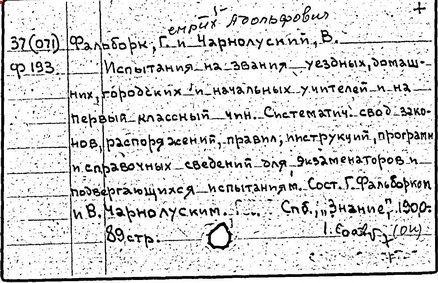 енрих Адольфович
37(071) Фальборк, Г. и Чарнолуский, В.
Ф193. Испытания на звания уездных, домаш-
них, городских и начальных учителей и на
первый классный чин. Систематич. свод зако-
нов, распоряжений, правил, инструкций, программ
и справочных сведений для экзаменаторов и
подвергающихся испытаниям. Сост. Г. Фальборком
и В. Чарнолуским. Спб., "Знание", 1900.
89 стр.